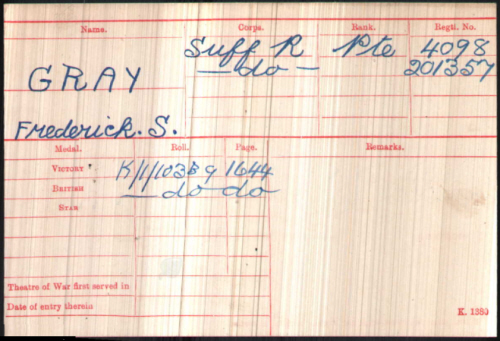 Name. Corps. Rank. Regtl. No.
GRAY Suff R Pte 4098
—do— 201357
Frederick. S.
Medal. Roll. Page. Remarks.
VICTORY K/1/103B9 1644
BRITISH —do— do
STAR
Theatre of War first served in
Date of entry therein
K. 1380